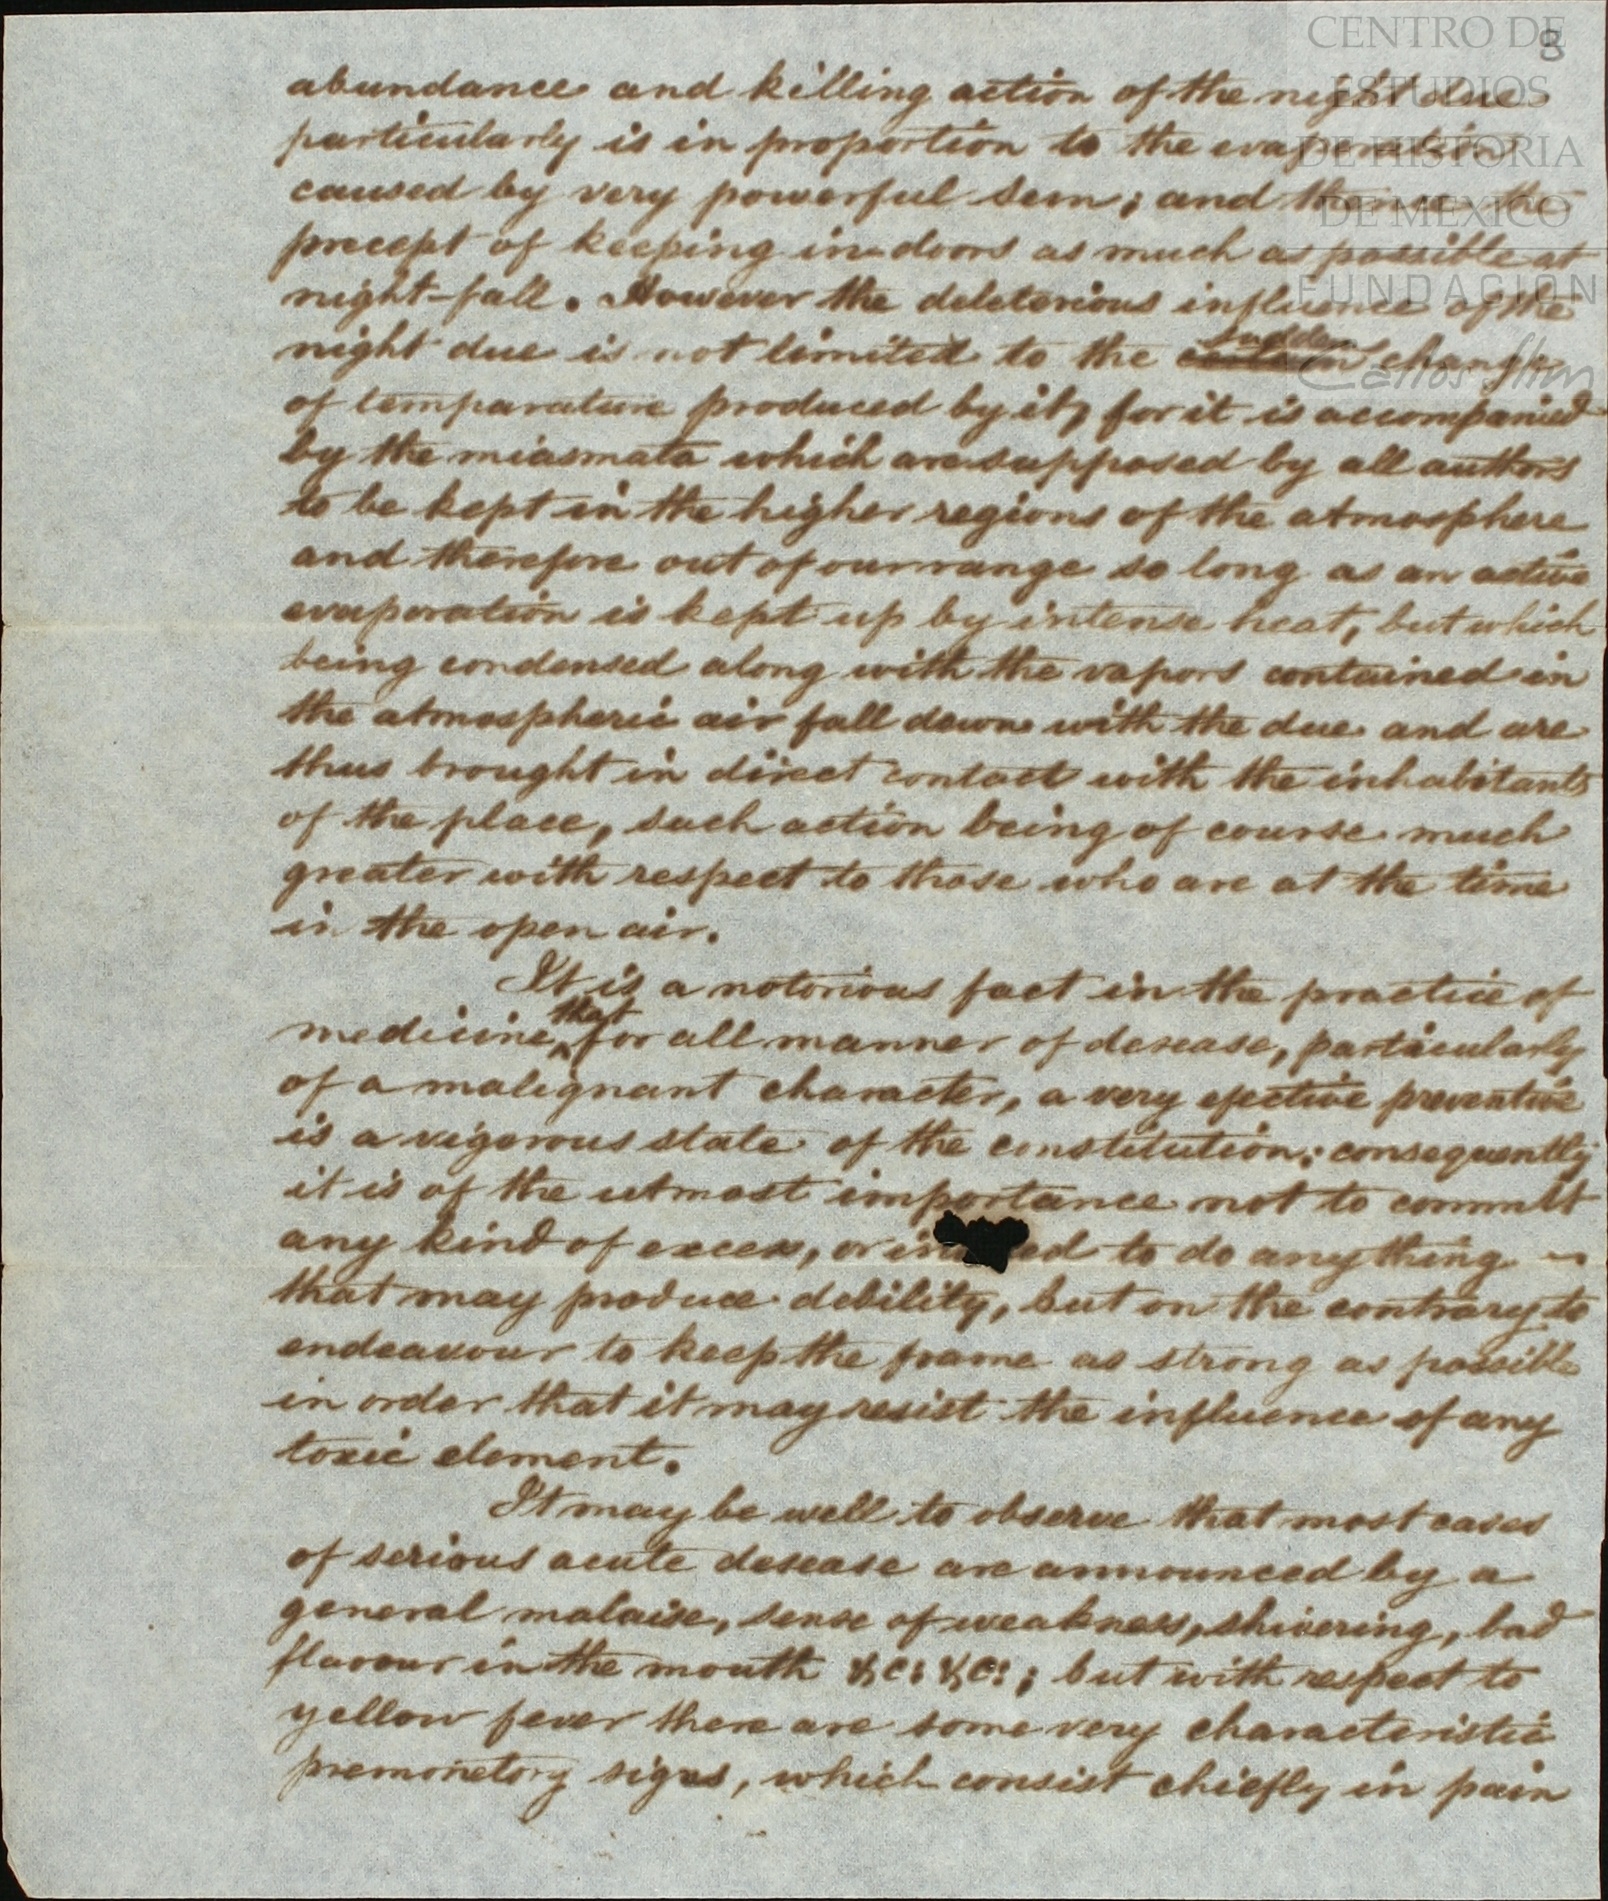 CENTRO DE
ESTUDIOS
DE HISTORIA
DE MEXICO
FUNDACION
Carlos Slim
8
abundance and killing action of the night due
particularly is in proportion to the evaporation
caused by very powerful sun; and thence the
precept of keeping in-doors as much as possible at
night-fall. However the deleterious influence of the
night due is not limited to the sudden change
of temparature produced by it, for it is accompanied
by the miasmata which are supposed by all authors
to be kept in the higher regions of the atmosphere
and therefore out of our range so long as an active
evaporation is kept up by intense heat, but which
being condensed along with the vapors contained in
the atmospheric air fall down with the due and are
thus brought in direct contact with the inhabitants
of the place, such action being of course much
greater with respect to those who are at the time
in the open air.
It is a notorious fact in the practice of
medicine, that for all manner of desease, particularly
of a malignant character, a very efective preventive
is a vigorous state of the constitution; consequently
it is of the utmost importance not to committ
any kind of excess, or to do anything
that may produce debility, but on the contrary to
endeavour to keep the frame as strong as possible
in order that it may resist the influence of any
toxic element.
It may be well to observe that most cases
of serious acute desease are announced by a
general malaise, sense of weakness, shivering, bad
flavour in the mouth &c: &c:; but with respect to
yellow fever there are some very characteristic
premonetory signs, which consist chiefly in pain